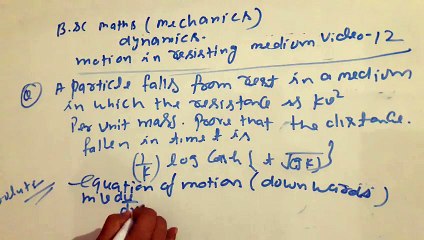 B.SC maths (mechanics)
dynamics.
motion in resisting medium Video-12
Q A Particle falls from rest in a medium
in which the resistance is kv²
Per unit mass. Prove that the distance.
fallen in time t is
(1/k) log cosh { t √(gk) }
Equation of motion (downwards)
mvdv